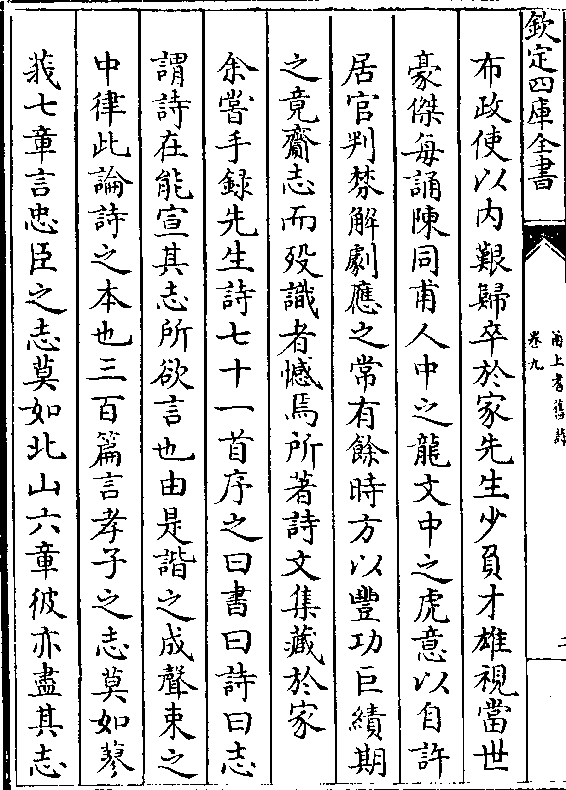 欽定四庫全書
甬上耆舊詩
卷九
二
布政使以内艱歸卒於家先生少負才雄視當世
豪傑每誦陳同甫人中之龍文中之虎意以自許
居官判棼解劇應之常有餘時方以豐功巨績期
之竟齎志而殁識者憾焉所著詩文集藏於家
余嘗手錄先生詩七十一首序之曰書曰詩曰志
謂詩在能宣其志所欲言也由是諧之成聲束之
中律此論詩之本也三百篇言孝子之志莫如蓼
莪七章言忠臣之志莫如北山六章彼亦盡其志